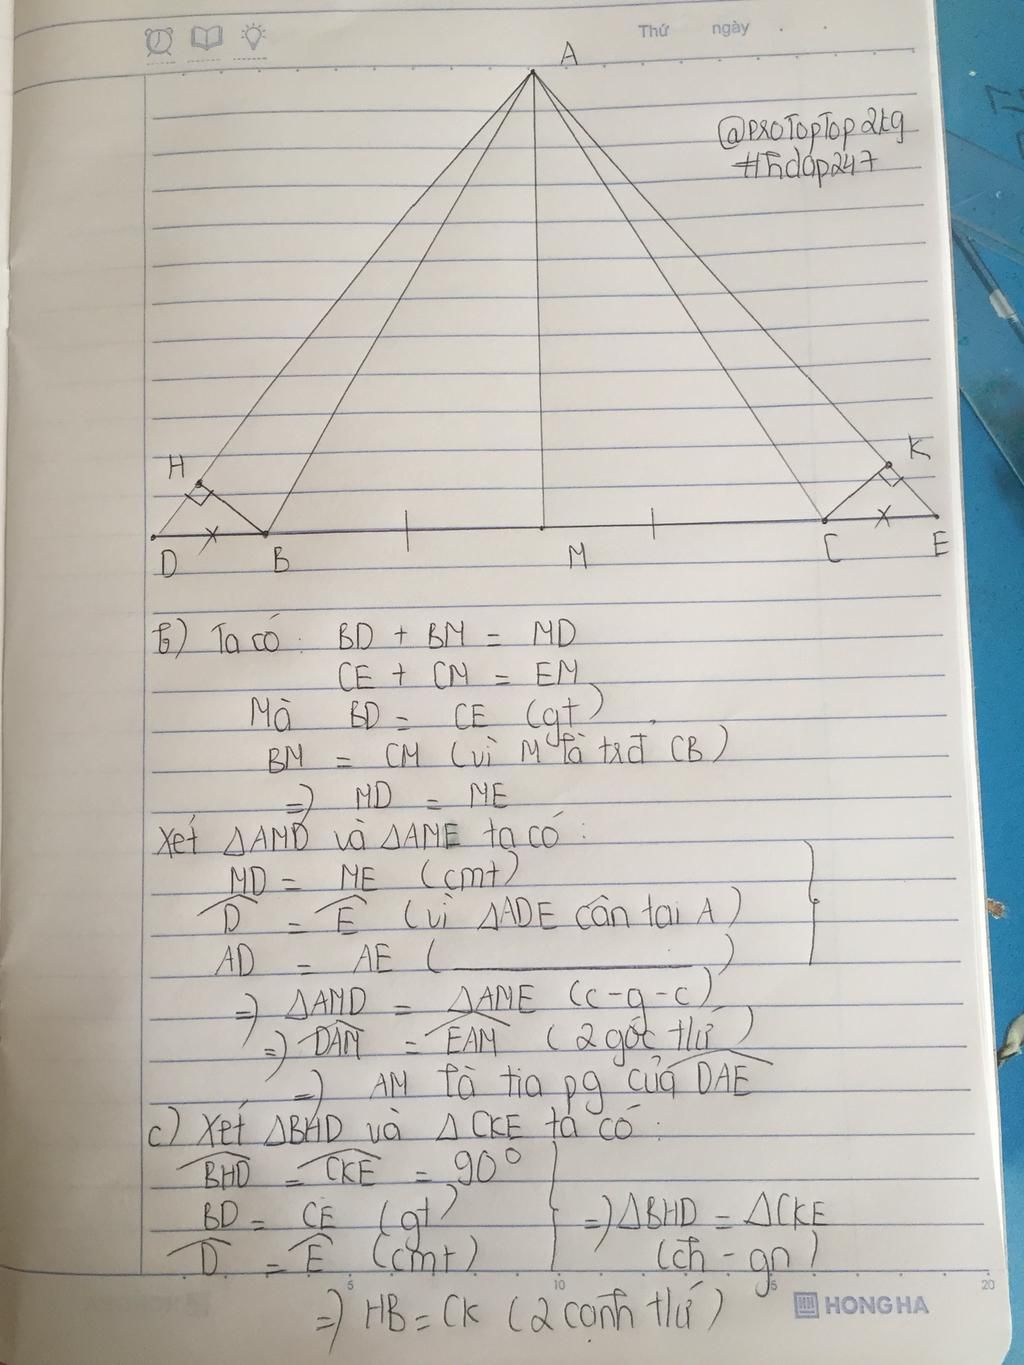 Thứ ngày
A
@proTopTop2kg
#hdap247
H
K
D B M C E
b) Ta có: BD + BM = MD
CE + CM = EM
Mà BD = CE (gt)
BM = CM (vì M là trđ CB)
=> MD = ME
Xét ΔAMD và ΔAME ta có:
MD = ME (cmt)
D̂ = Ê (vì ΔADE cân tại A)
AD = AE ( ______ )
=> ΔAMD = ΔAME (c-g-c)
=> DAM = EAM (2 góc t/ứ)
=> AM là tia pg của DAE
c) Xét ΔBHD và ΔCKE ta có:
BHD = CKE = 90°
BD = CE (gt) => ΔBHD = ΔCKE
D̂ = Ê (cmt) (ch - gn)
5 10 20
=> HB = CK (2 cạnh t/ứ)
HONG HA